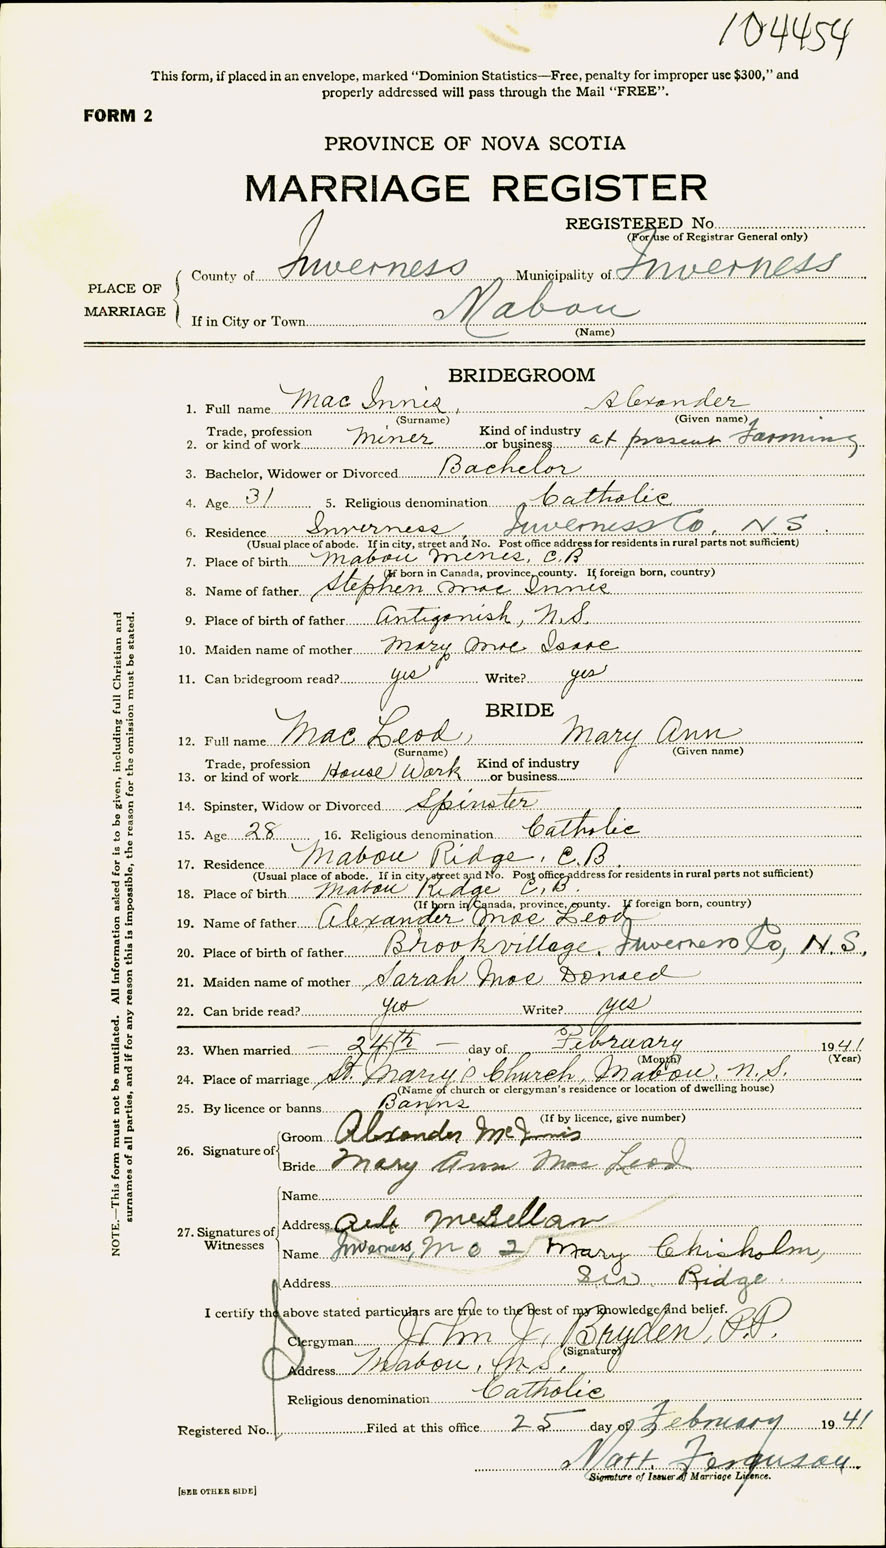 104454
This form, if placed in an envelope, marked "Dominion Statistics—Free, penalty for improper use $300," and
properly addressed will pass through the Mail "FREE".
FORM 2
PROVINCE OF NOVA SCOTIA
MARRIAGE REGISTER
REGISTERED No.
(For use of Registrar General only)
PLACE OF MARRIAGE
County of Inverness Municipality of Inverness
If in City or Town Mabou
(Name)
BRIDEGROOM
1. Full name Mac Innis, Alexander
(Surname) (Given name)
2. Trade, profession or kind of work Miner Kind of industry or business at present Farming
3. Bachelor, Widower or Divorced Bachelor
4. Age 31 5. Religious denomination Catholic
6. Residence Inverness, Inverness Co, N.S.
(Usual place of abode. If in city, street and No. Post office address for residents in rural parts not sufficient)
7. Place of birth Mabou Mines, C.B
(If born in Canada, province, county. If foreign born, country)
8. Name of father Stephen Mac Innis
9. Place of birth of father Antigonish, N.S.
10. Maiden name of mother Mary Mac Isaac
11. Can bridegroom read? yes Write? yes
BRIDE
12. Full name Mac Leod, Mary Ann
(Surname) (Given name)
13. Trade, profession or kind of work House Work Kind of industry or business
14. Spinster, Widow or Divorced Spinster
15. Age 28 16. Religious denomination Catholic
17. Residence Mabou Ridge, C.B.
(Usual place of abode. If in city, street and No. Post office address for residents in rural parts not sufficient)
18. Place of birth Mabou Ridge C.B.
(If born in Canada, province, county. If foreign born, country)
19. Name of father Alexander Mac Leod
20. Place of birth of father Brookvillage, Inverness Co, N.S.
21. Maiden name of mother Sarah Mac Donald
22. Can bride read? yes Write? yes
23. When married — 24th — day of February 1941
(Month) (Year)
24. Place of marriage St. Mary's Church, Mabou, N.S.
(Name of church or clergyman's residence or location of dwelling house)
25. By licence or banns Banns
(If by licence, give number)
26. Signature of
Groom Alexander McInnis
Bride Mary Ann Mac Leod
27. Signatures of Witnesses
Name
Address McLellan
Name Inverness, Mary Chisholm,
Address Ridge
I certify the above stated particulars are true to the best of my knowledge and belief.
Clergyman John J. Bryden, P.P.
(Signature)
Address Mabou, N.S.
Religious denomination Catholic
Registered No. Filed at this office 25 day of February 1941
Matt. Ferguson
Signature of Issuer of Marriage Licence.
[SEE OTHER SIDE]
NOTE.—This form must not be mutilated. All information asked for is to be given, including full Christian and
surnames of all parties, and if for any reason this is impossible, the reason for the omission must be stated.